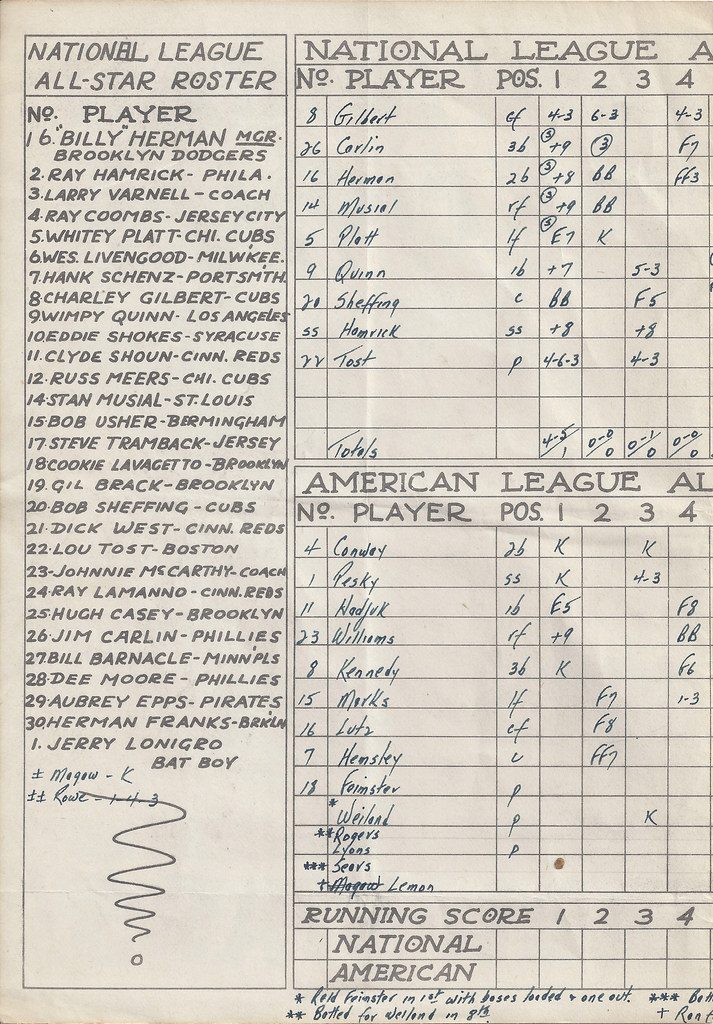 NATIONAL LEAGUE
ALL-STAR ROSTER
No. PLAYER
16. "BILLY" HERMAN MGR.
BROOKLYN DODGERS
2. RAY HAMRICK - PHILA.
3. LARRY VARNELL - COACH
4. RAY COOMBS - JERSEY CITY
5. WHITEY PLATT - CHI. CUBS
6. WES. LIVENGOOD - MILWKEE.
7. HANK SCHENZ - PORTSMTH.
8. CHARLEY GILBERT - CUBS
9. WIMPY QUINN - LOS ANGELES
10. EDDIE SHOKES - SYRACUSE
11. CLYDE SHOUN - CINN. REDS
12. RUSS MEERS - CHI. CUBS
14. STAN MUSIAL - ST. LOUIS
15. BOB USHER - BERMINGHAM
17. STEVE TRAMBACK - JERSEY
18. COOKIE LAVAGETTO - BROOKLYN
19. GIL BRACK - BROOKLYN
20. BOB SHEFFING - CUBS
21. DICK WEST - CINN. REDS
22. LOU TOST - BOSTON
23. JOHNNIE McCARTHY - COACH
24. RAY LAMANNO - CINN. REDS
25. HUGH CASEY - BROOKLYN
26. JIM CARLIN - PHILLIES
27. BILL BARNACLE - MINN'PLS
28. DEE MOORE - PHILLIES
29. AUBREY EPPS - PIRATES
30. HERMAN FRANKS - BRK'LN
1. JERRY LONIGRO
BAT BOY
± Magaw - K
±± Rowe - 1-4-3
NATIONAL LEAGUE A
No. PLAYER POS. 1 2 3 4
8 Gilbert cf 4-3 6-3 4-3
26 Carlin 3b ③ +9 ③ F7
16 Herman 2b ③ +8 BB FF3
14 Musial rf ③ +9 BB
5 Platt lf ③ E7 K
9 Quinn 1b +7 5-3
20 Sheffing c BB F5
ss Hamrick ss +8 +8
22 Tost p 4-6-3 4-3
Totals 4-5/1 0-0/0 0-1/0 0-0/0
AMERICAN LEAGUE AL
No. PLAYER POS. 1 2 3 4
4 Conway 2b K K
1 Pesky ss K 4-3
11 Hadjuk 1b E5 F8
23 Williams rf +9 BB
8 Kennedy 3b K F6
15 Marks lf F7 1-3
16 Lutz cf F8
7 Hemsley c FF7
18 Feimster p
* Weiland p K
** Rogers
Lyons p
*** Sears
+ Magaw Lemon
RUNNING SCORE 1 2 3 4
NATIONAL
AMERICAN
* Reld Feimster in 1st with bases loaded & one out. *** Batt
** Batted for Weiland in 8th + Ran f